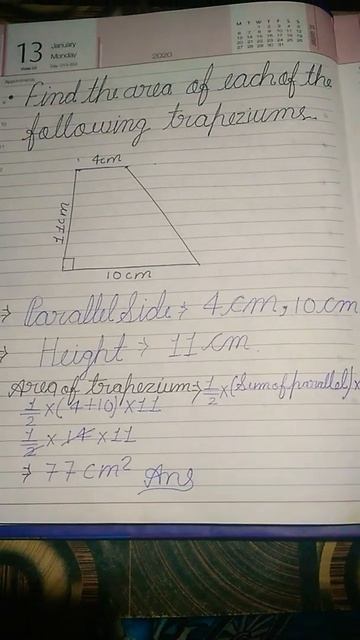 13
January
Monday
2020
M T W T F S S
• Find the area of each of the
following trapeziums.
4cm
11cm
10cm
⇒ Parallel Side ⇒ 4cm, 10cm
⇒ Height ⇒ 11cm.
Area of trapezium ⇒ 1/2 × (Sum of parallel) ×
1/2 × (4+10) × 11
1/2 × 14 × 11
⇒ 77cm² Ans